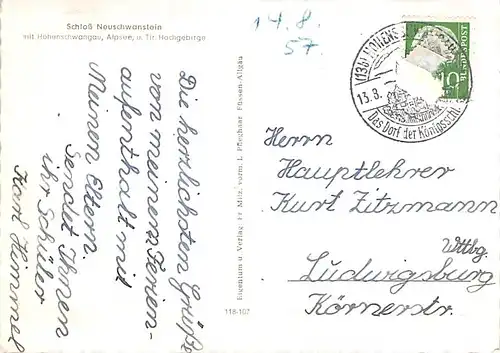 Schloß Neuschwanstein
mit Hohenschwangau, Alpsee, u. Tir. Hochgebirge
14.8.
57.
Die herlichsten Grüße
von meinem Ferien-
aufenthalt mit
Meinen Eltern.
Sendet Ihnen
ihr Schüler
Karl Himmel
Eigentum u. Verlag: Fr. Milz, vorm. L. Pfleghaar, Füssen-Allgäu
118-107
(13b) HOHENS
13.8.
Das Dorf der Königsschl.
10
BUNDESPOST
Herrn
Hauptlehrer
Kurt Zitzmann
Wttbg.
Ludwigsburg
Körnerstr.